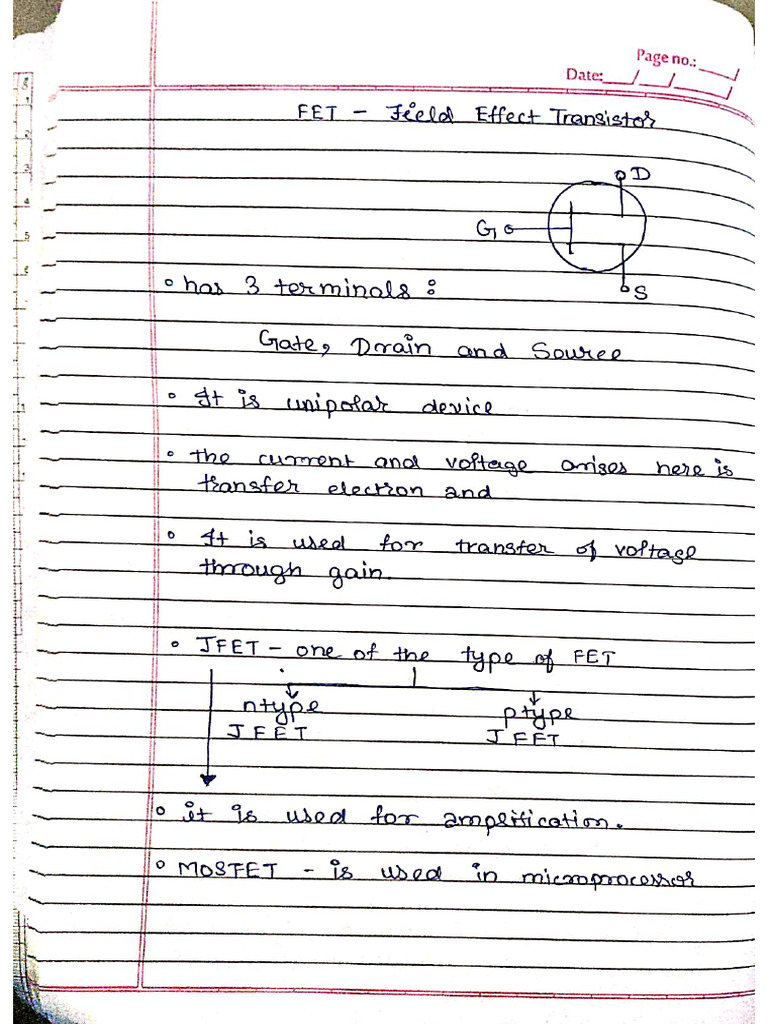 Page no.:
Date: / /
FET - Field Effect Transistor
D
G
S
has 3 terminals :
Gate, Drain and Source
It is unipolar device
the current and voltage arises here is
transfer electron and
It is used for transfer of voltage
through gain.
JFET - one of the type of FET
ntype ptype
JFET JFET
it is used for amplification.
MOSFET - is used in microprocessor